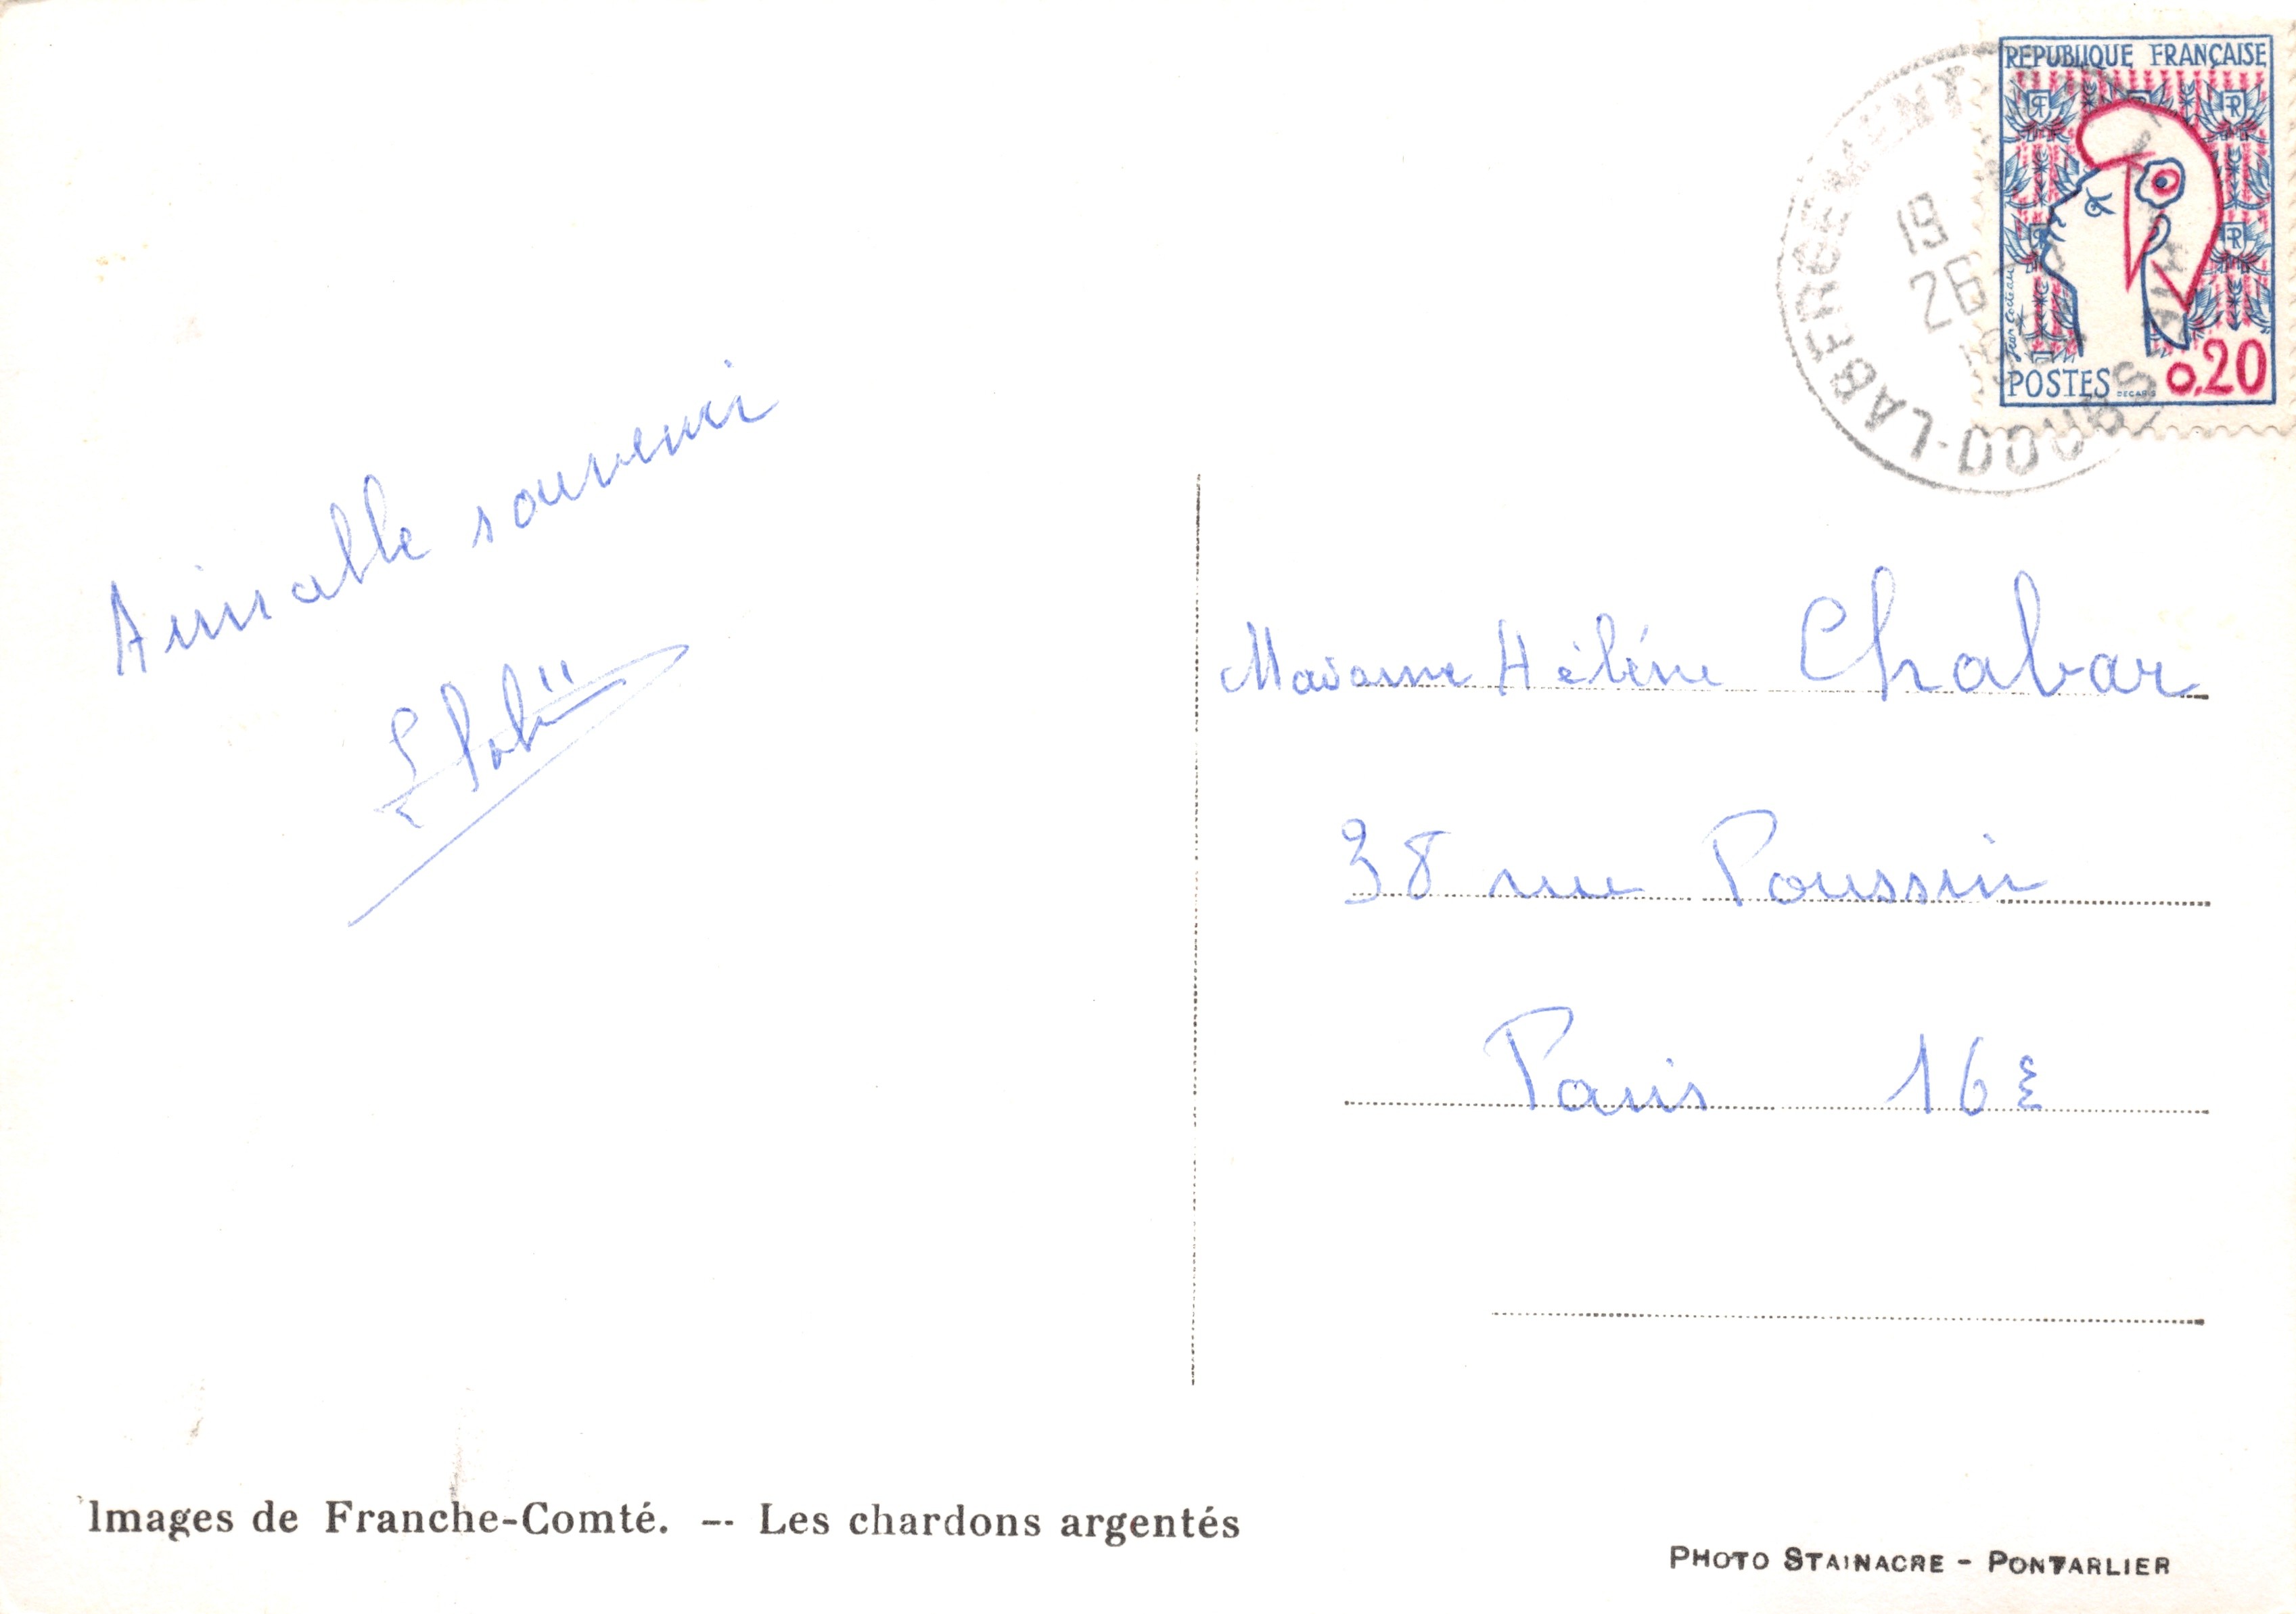 REPUBLIQUE FRANÇAISE
Jean Cocteau
POSTES
DECARIS
0,20
19
26
DOUBS
Aimable souvenir
Madame Hélène Chabar
38 rue Poussin
Paris 16E
Images de Franche-Comté. -- Les chardons argentés
PHOTO STAINACRE - PONTARLIER